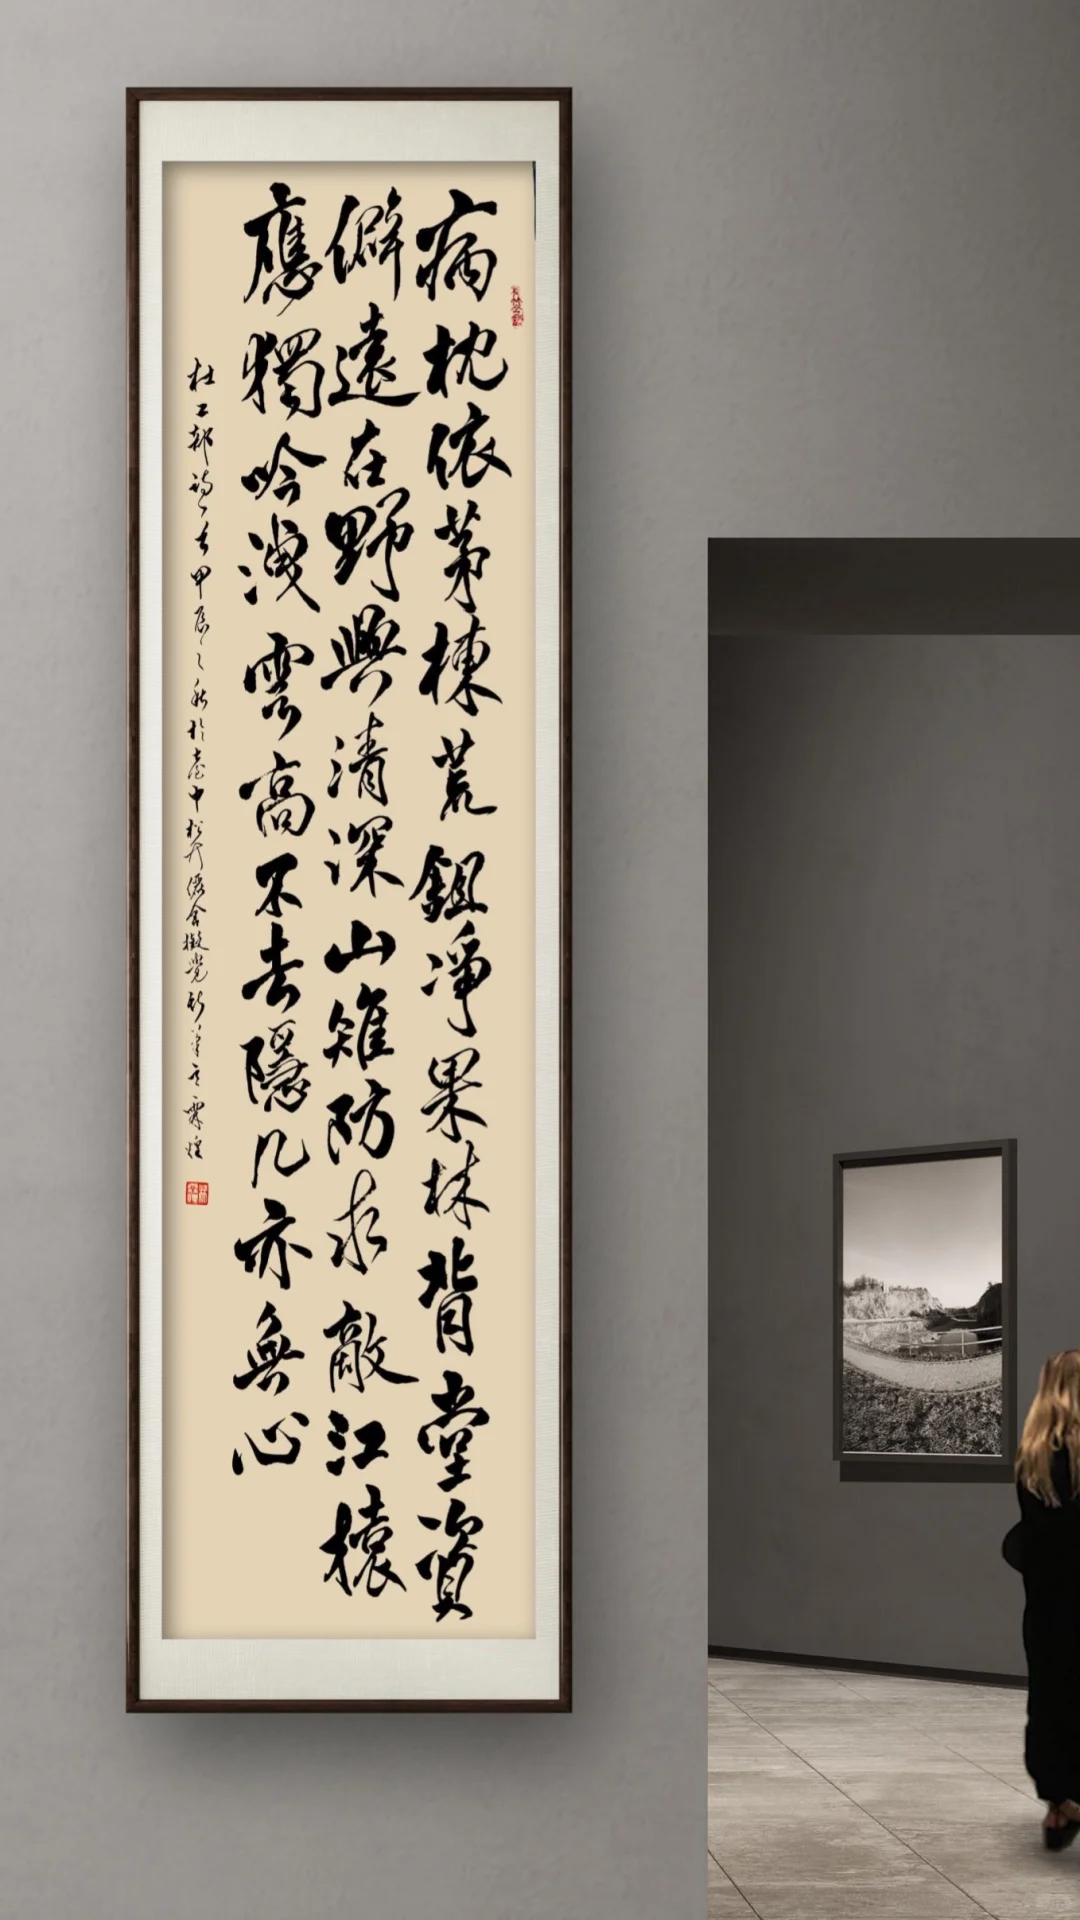 病枕依茅棟荒鉏淨果林背堂資
僻遠在野興清深山雉防求敵江猿
應獨吟洩雲高不去隱几亦無心
杜工部詩一首甲辰之秋於臺中松竹舍霖煌